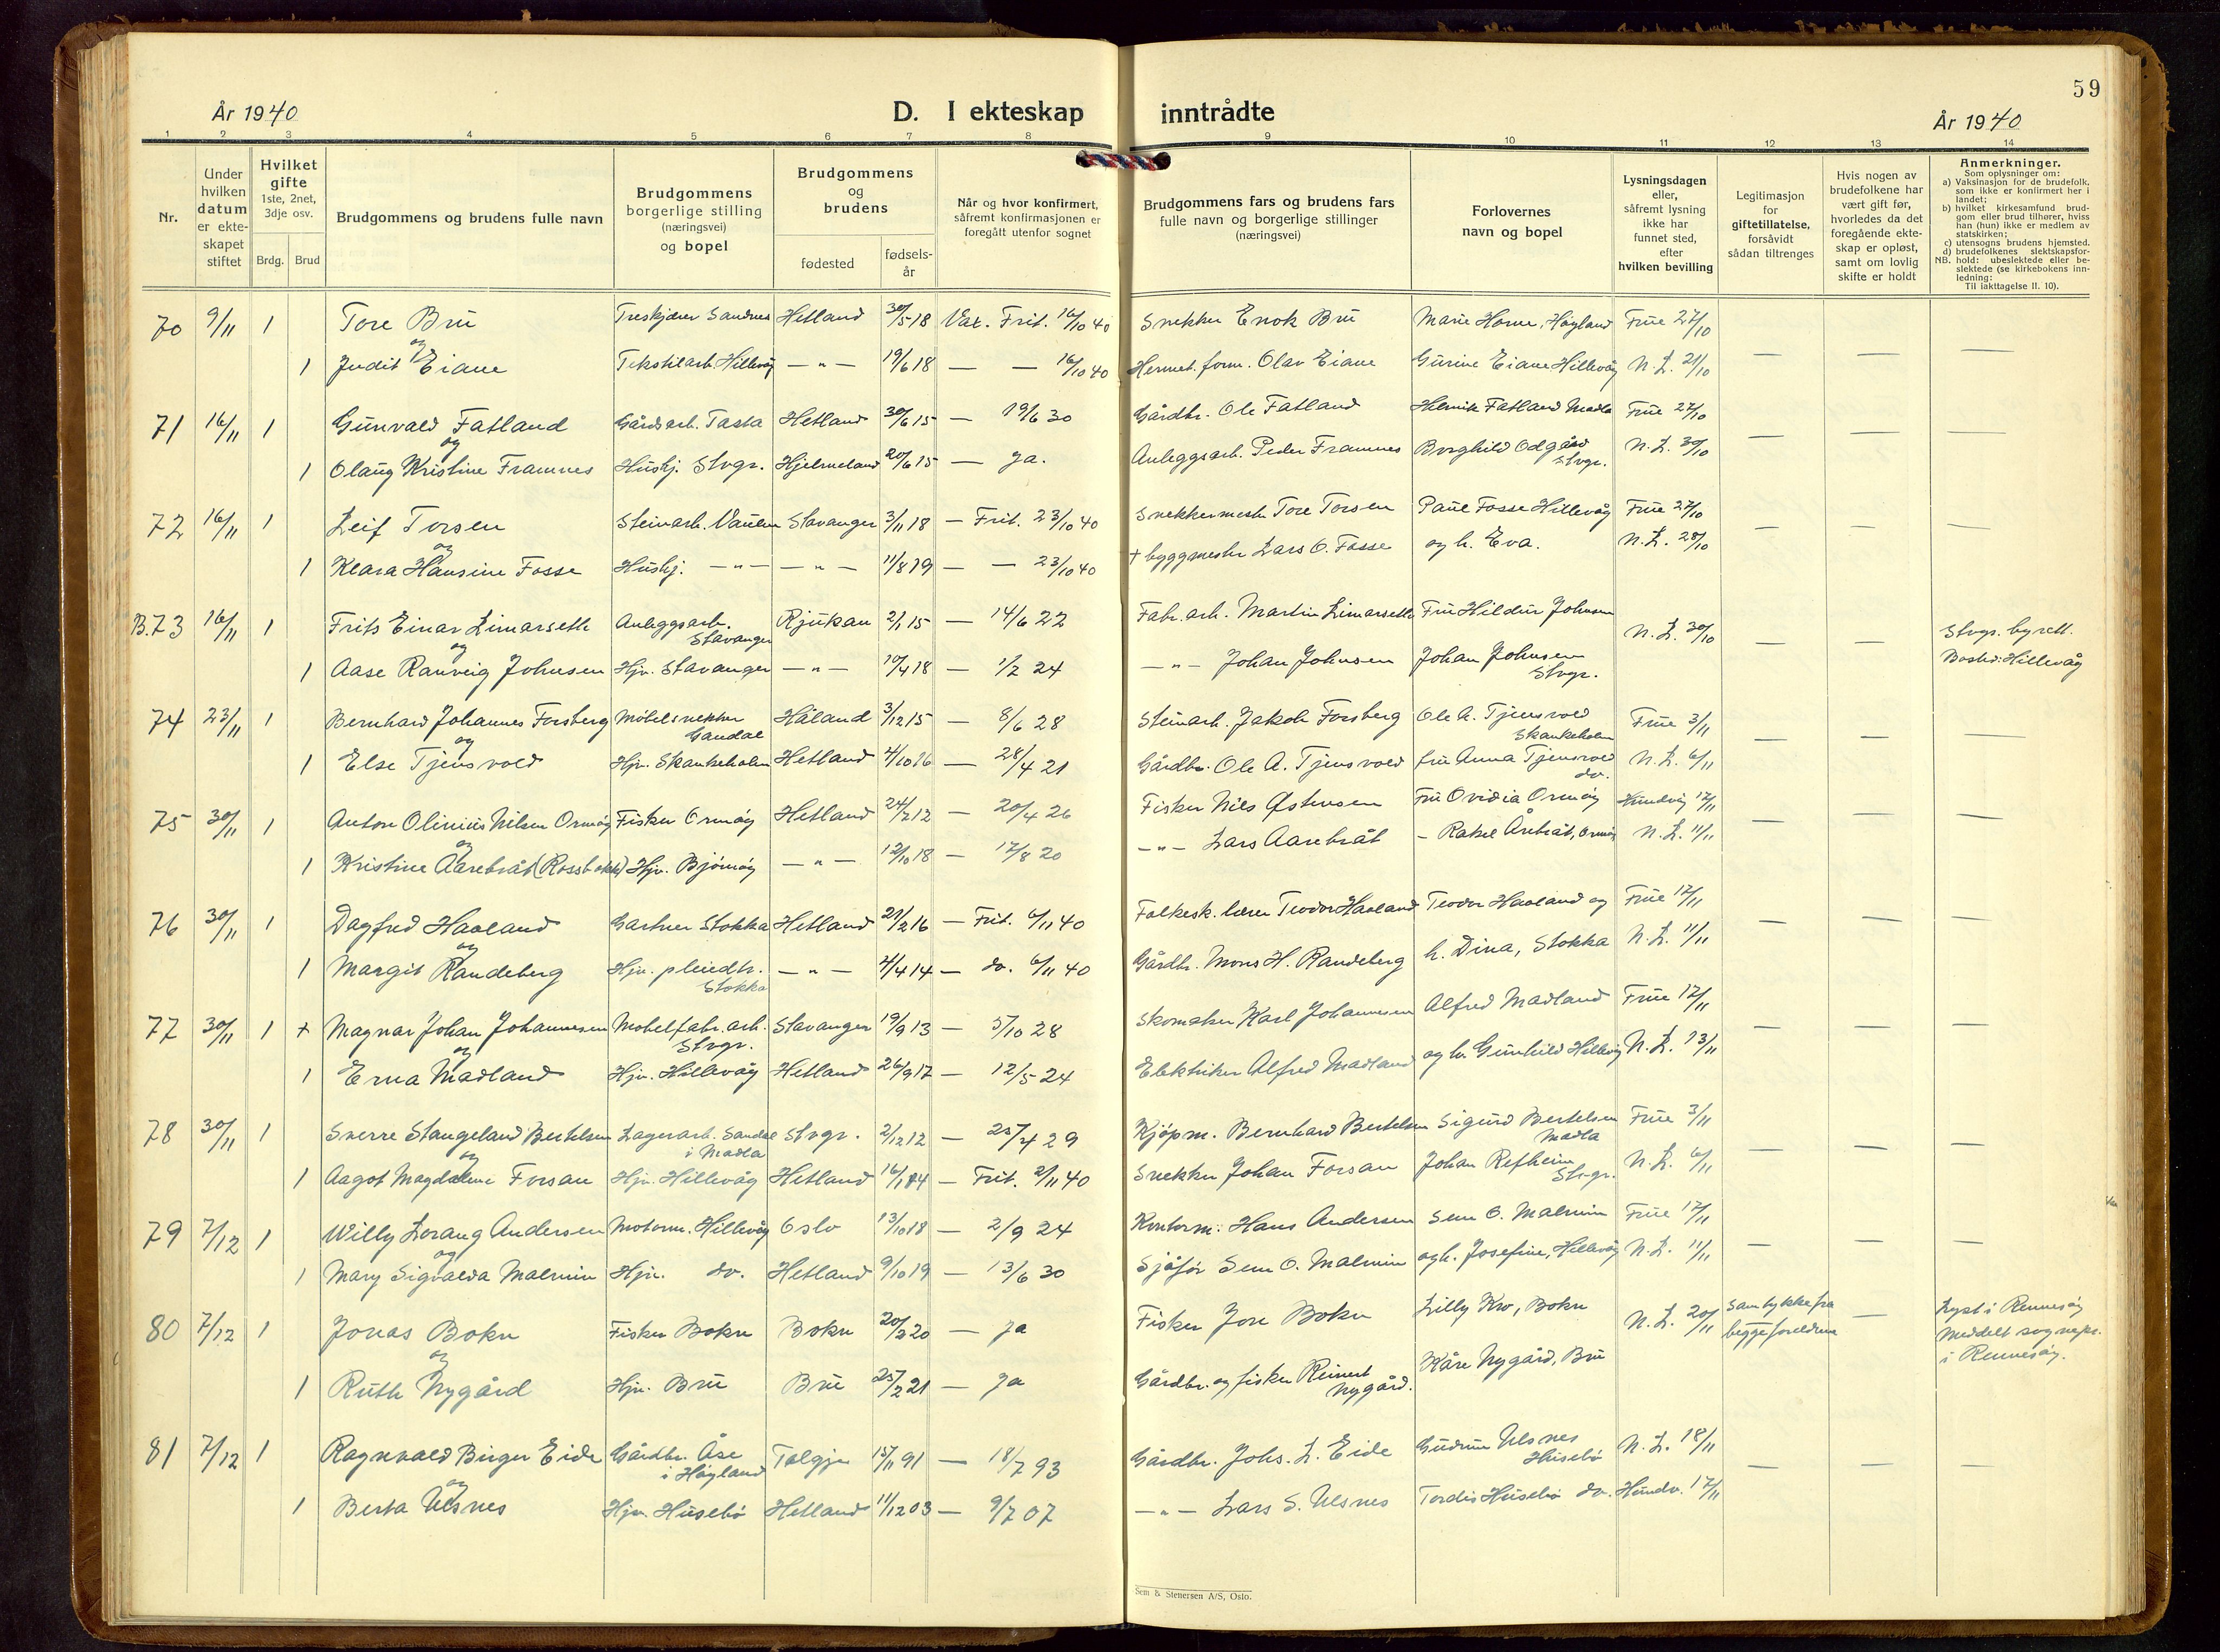 59
År 1940
D. I ekteskap inntrådte
År 1940
1 2 3 4 5 6 7 8 9 10 11 12 13 14
Nr.
Under hvilken datum er ekteskapet stiftet
Hvilket gifte 1ste, 2net, 3dje osv.
Brdg. Brud
Brudgommens og brudens fulle navn
Brudgommens borgerlige stilling (næringsvei) og bopel
Brudgommens og brudens
fødested
fødselsår
Når og hvor konfirmert, såfremt konfirmasjonen er foregått utenfor sognet
Brudgommens fars og brudens fars fulle navn og borgerlige stillinger (næringsvei)
Forlovernes navn og bopel
Lysningsdagen eller, såfremt lysning ikke har funnet sted, efter hvilken bevilling
Legitimasjon for giftetillatelse, forsåvidt sådan tiltrenges
Hvis nogen av brudefolkene har vært gift før, hvorledes da det foregående ekteskap er opløst, samt om lovlig skifte er holdt
Anmerkninger.
Som oplysninger om:
a) Vaksinasjon for de brudefolk, som ikke er konfirmert her i landet;
b) hvilket kirkesamfund brudgom eller brud tilhører, hviss han (hun) ikke er medlem av statskirken;
c) utensogns brudens hjemsted.
d) brudefolkenes slektskapsforhold: ubeslektede eller beslektede (se kirkebokens innledning:
NB. Til iakttagelse II. 10).
70 9/11 1 Tore Bru Treskjærer Sandnes Hetland 30/5 18 Vax. Frit. 16/10 40 Snekker Enok Bru Marie Horne, Høyland Frue 27/10
og
1 Judit Eiane Tekstilarb. Hillevåg — " — 19/6 18 — — 16/10 40 Hermet. form. Olav Eiane Gurine Eiane Hillevåg N.L. 21/10 — — —
71 16/11 1 Gunvald Fatland Gårdsarb. Tasta Hetland 30/6 15 — 19/6 30 Gårdbr. Ole Fatland Henrik Fatland Madla Frue 27/10
og
1 Olaug Kristine Framnes Hushj. Stvgr. Hjelmeland 20/6 15 — Ja. Anleggsarb. Peder Framnes Borghild Odgård Stvgr. N.L. 30/10 — — —
72 16/11 1 Leif Torsen Steinarb. Vaulen Stavanger 3/11 18 — Frit. 23/10 40 Snekkermester Tore Torsen Paul Fosse Hillevåg Frue 27/10
og
1 Klara Hansine Fosse Hushj. — " — — " — 11/8 19 — — 23/10 40 + byggmester Lars O. Fosse og h. Eva. N.L. 28/10 — — —
B.73 16/11 1 Frits Einar Limarseth Anleggsarb. Stavanger Rjukan 2/1 15 — 14/6 22 Fabr. arb. Martin Limarseth Fru Hildur Johnsen
og
1 Aase Ranveig Johnsen Hjv. Stavanger — " — 10/4 18 — 1/2 24 — " — Johan Johnsen Johan Johnsen Stvgr. N.L. 30/10 — — Stvgr. byrett. Bosted: Hillevåg
74 23/11 1 Bernhard Johannes Forsberg Møbelsnekker Gandal Håland 3/12 15 — 8/6 28 Steinarb. Jakob Forsberg Ole A. Tjensvold Skankeholm Frue 3/11
og
1 Else Tjensvold Hjv. Skankeholm Hetland 4/10 16 — 28/4 21 Gårdbr. Ole A. Tjensvold fru Anna Tjensvold do. N.L. 6/11 — — —
75 30/11 1 Anton Olinius Nilsen Ormøy Fisker Ormøy Hetland 24/2 12 — 20/4 26 Fisker Nils Østensen Fru Ovidia Ormøy Hundvåg 17/11
og
1 Kristine Aarebråt (Rossbakk) Hjv. Bjørnøy — " — 12/10 18 — 17/8 20 — " — Lars Aarebråt — Rakel Årebråt, Ormøy N.L. 11/11 — — —
76 30/11 1 Dagfred Haaland Gartner Stokka Hetland 21/2 16 — Frit. 6/11 40 Folkesk. lærer Teodor Haaland Teodor Haaland og Frue 17/11
og
1 Margit Randeberg Hjv. Stokka — " — 4/4 14 — do. 6/11 40 Gårdbr. Mons H. Randeberg h. Dina, Stokka N.L. 11/11 — — —
77 30/11 1 + Magnar Johan Johannesen Møbelfabr. arb. Stvgr. Stavanger 19/9 13 — 5/10 28 Skomaker Karl Johannesen Alfred Madland Frue 17/11
og
1 Erna Madland Hjv. Hillevåg Hetland 26/9 17 — 12/5 24 Elektriker Alfred Madland og h. Gunhild Hillevåg N.L. 13/11 — — —
78 30/11 1 Sverre Stangeland Bertelsen Lagerarb. Sandal i Madla Stvgr. 2/12 12 — 25/4 29 Kjøpm. Bernhard Bertelsen Sigurd Bertelsen Madla Frue 3/11
og
1 Aagot Magdalene Forsan Hjv. Hillevåg Hetland 16/1 14 — Frit. 2/11 40 Snekker Johan Forsan Johan Refheim Stvgr. N.L. 6/11 — — —
79 7/12 1 Willy Lorang Andersen Motorm. Hillevåg Oslo 13/10 18 — 2/9 24 Kontorm. Hans Andersen Sem O. Malmin Frue 17/11
og
1 Mary Sigvalda Malmin Hjv. do. Hetland 9/10 19 — 13/6 30 Sjåfør Sem O. Malmin og h. Josefine, Hillevåg N.L. 11/11 — — —
80 7/12 1 Jonas Bokn Fisker Bokn Bokn 20/2 20 — Ja Fisker Jore Bokn Lilly Kro, Bokn N.L. 20/11 Samtykke fra begge foreldrene — Lyst i Rennesøy Meddelt sognepr. i Rennesøy.
og
1 Ruth Nygård Hjv. Bru Bru 25/2 21 — Ja Gårdbr. og fisker Reinert Nygård. Kåre Nygård, Bru
81 7/12 1 Ragnvald Birger Eide Gårdbr. Åse i Høyland Talgje 15/11 91 — 18/7 93 Gårdbr. Johs. L. Eide Gudrun Ulsnes Husebø N.L. 18/11
og
1 Berta Ulsnes Hjv. Husebø Hetland 11/12 03 — 9/7 07 — " — Lars S. Ulsnes Tordis Husebø do. Hundv. 17/11 — — —
Sem & Stenersen A/S, Oslo.